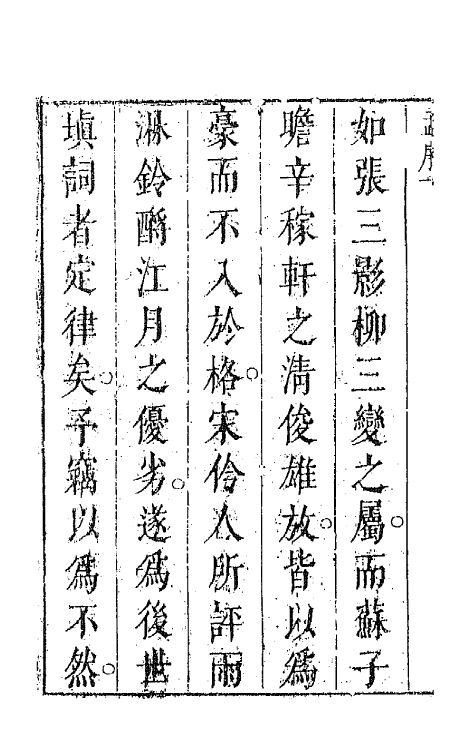 如張三影柳三變之屬而蘇子
瞻辛稼軒之清俊雄放皆以爲
豪而不入於格宋伶人所評雨
淋鈴酹江月之優劣遂爲後世
塡詞者定律矣予竊以爲不然